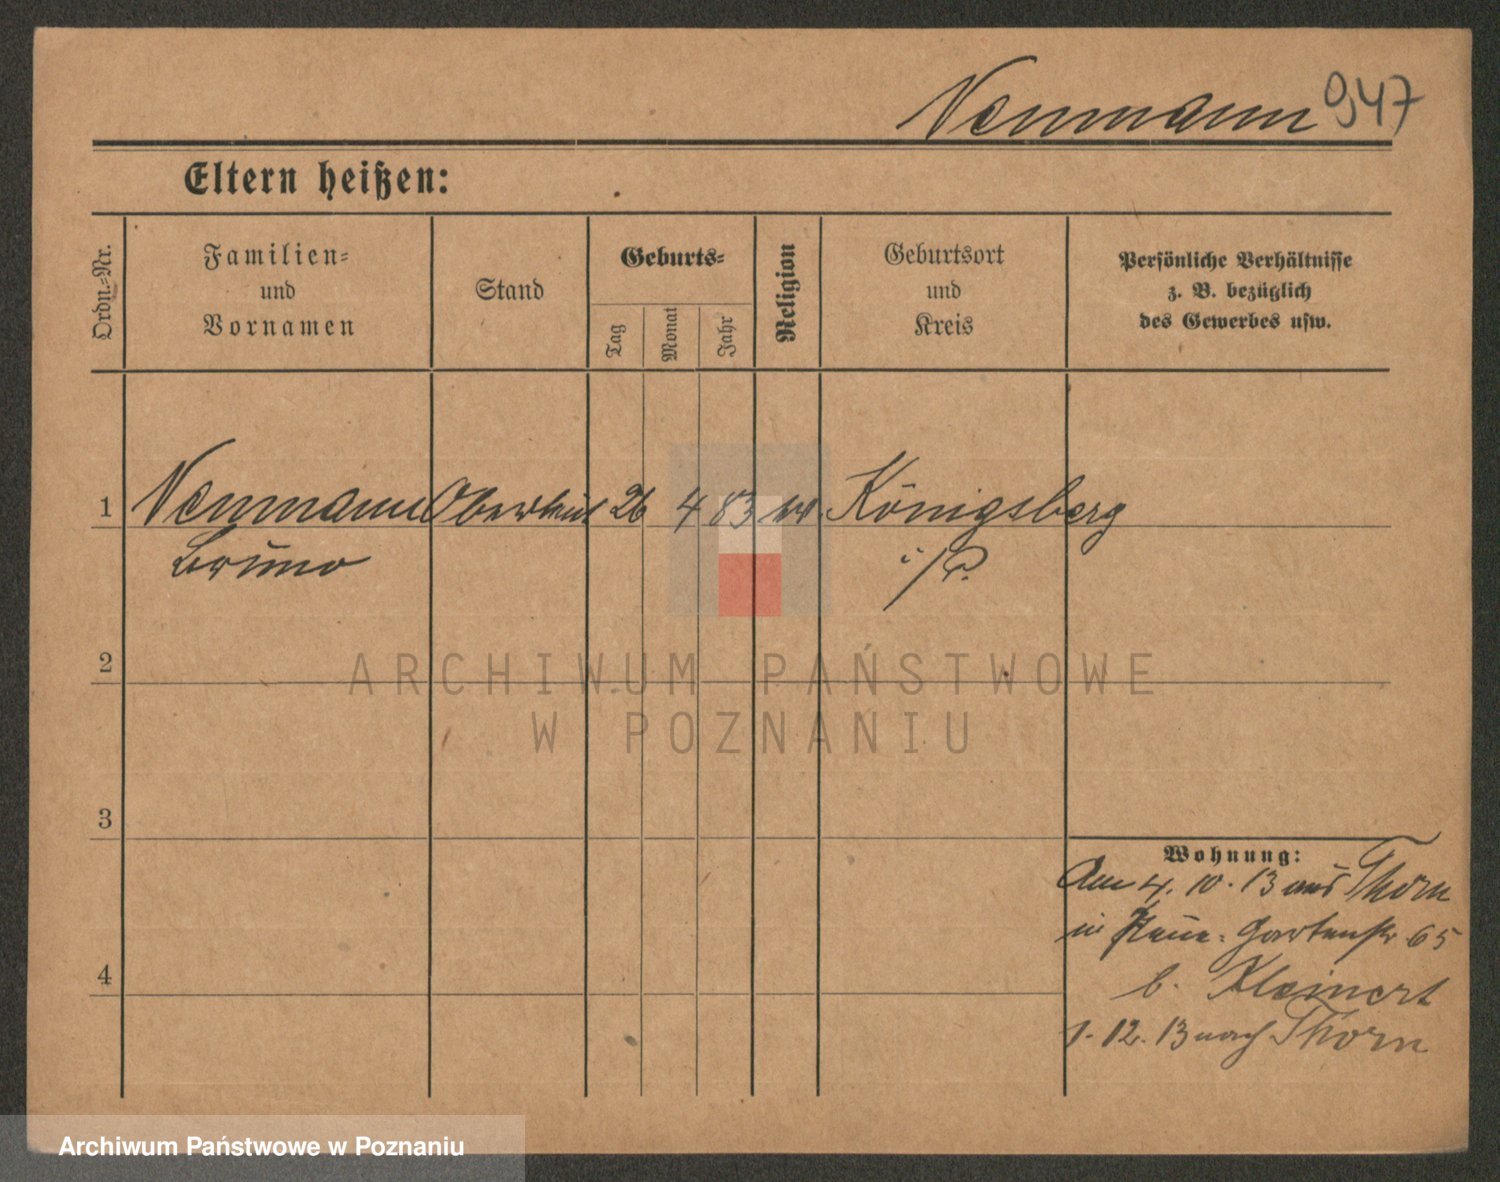 Neumann 947
Eltern heißen:
Ordn.-Nr.
Familien-
und
Vornamen
Stand
Geburts-
Tag
Monat
Jahr
Religion
Geburtsort
und
Kreis
Persönliche Verhältnisse
z. B. bezüglich
des Gewerbes usw.
1 Neumann 26 4 83 Königsberg
Bruno i/P.
2
ARCHIWUM PAŃSTWOWE
W POZNANIU
3
Wohnung:
Am 4. 10. 13 aus Thorn
in Gartenstr 65
b. Kleinert
1. 12. 13 nach Thorn
4
Archiwum Państwowe w Poznaniu